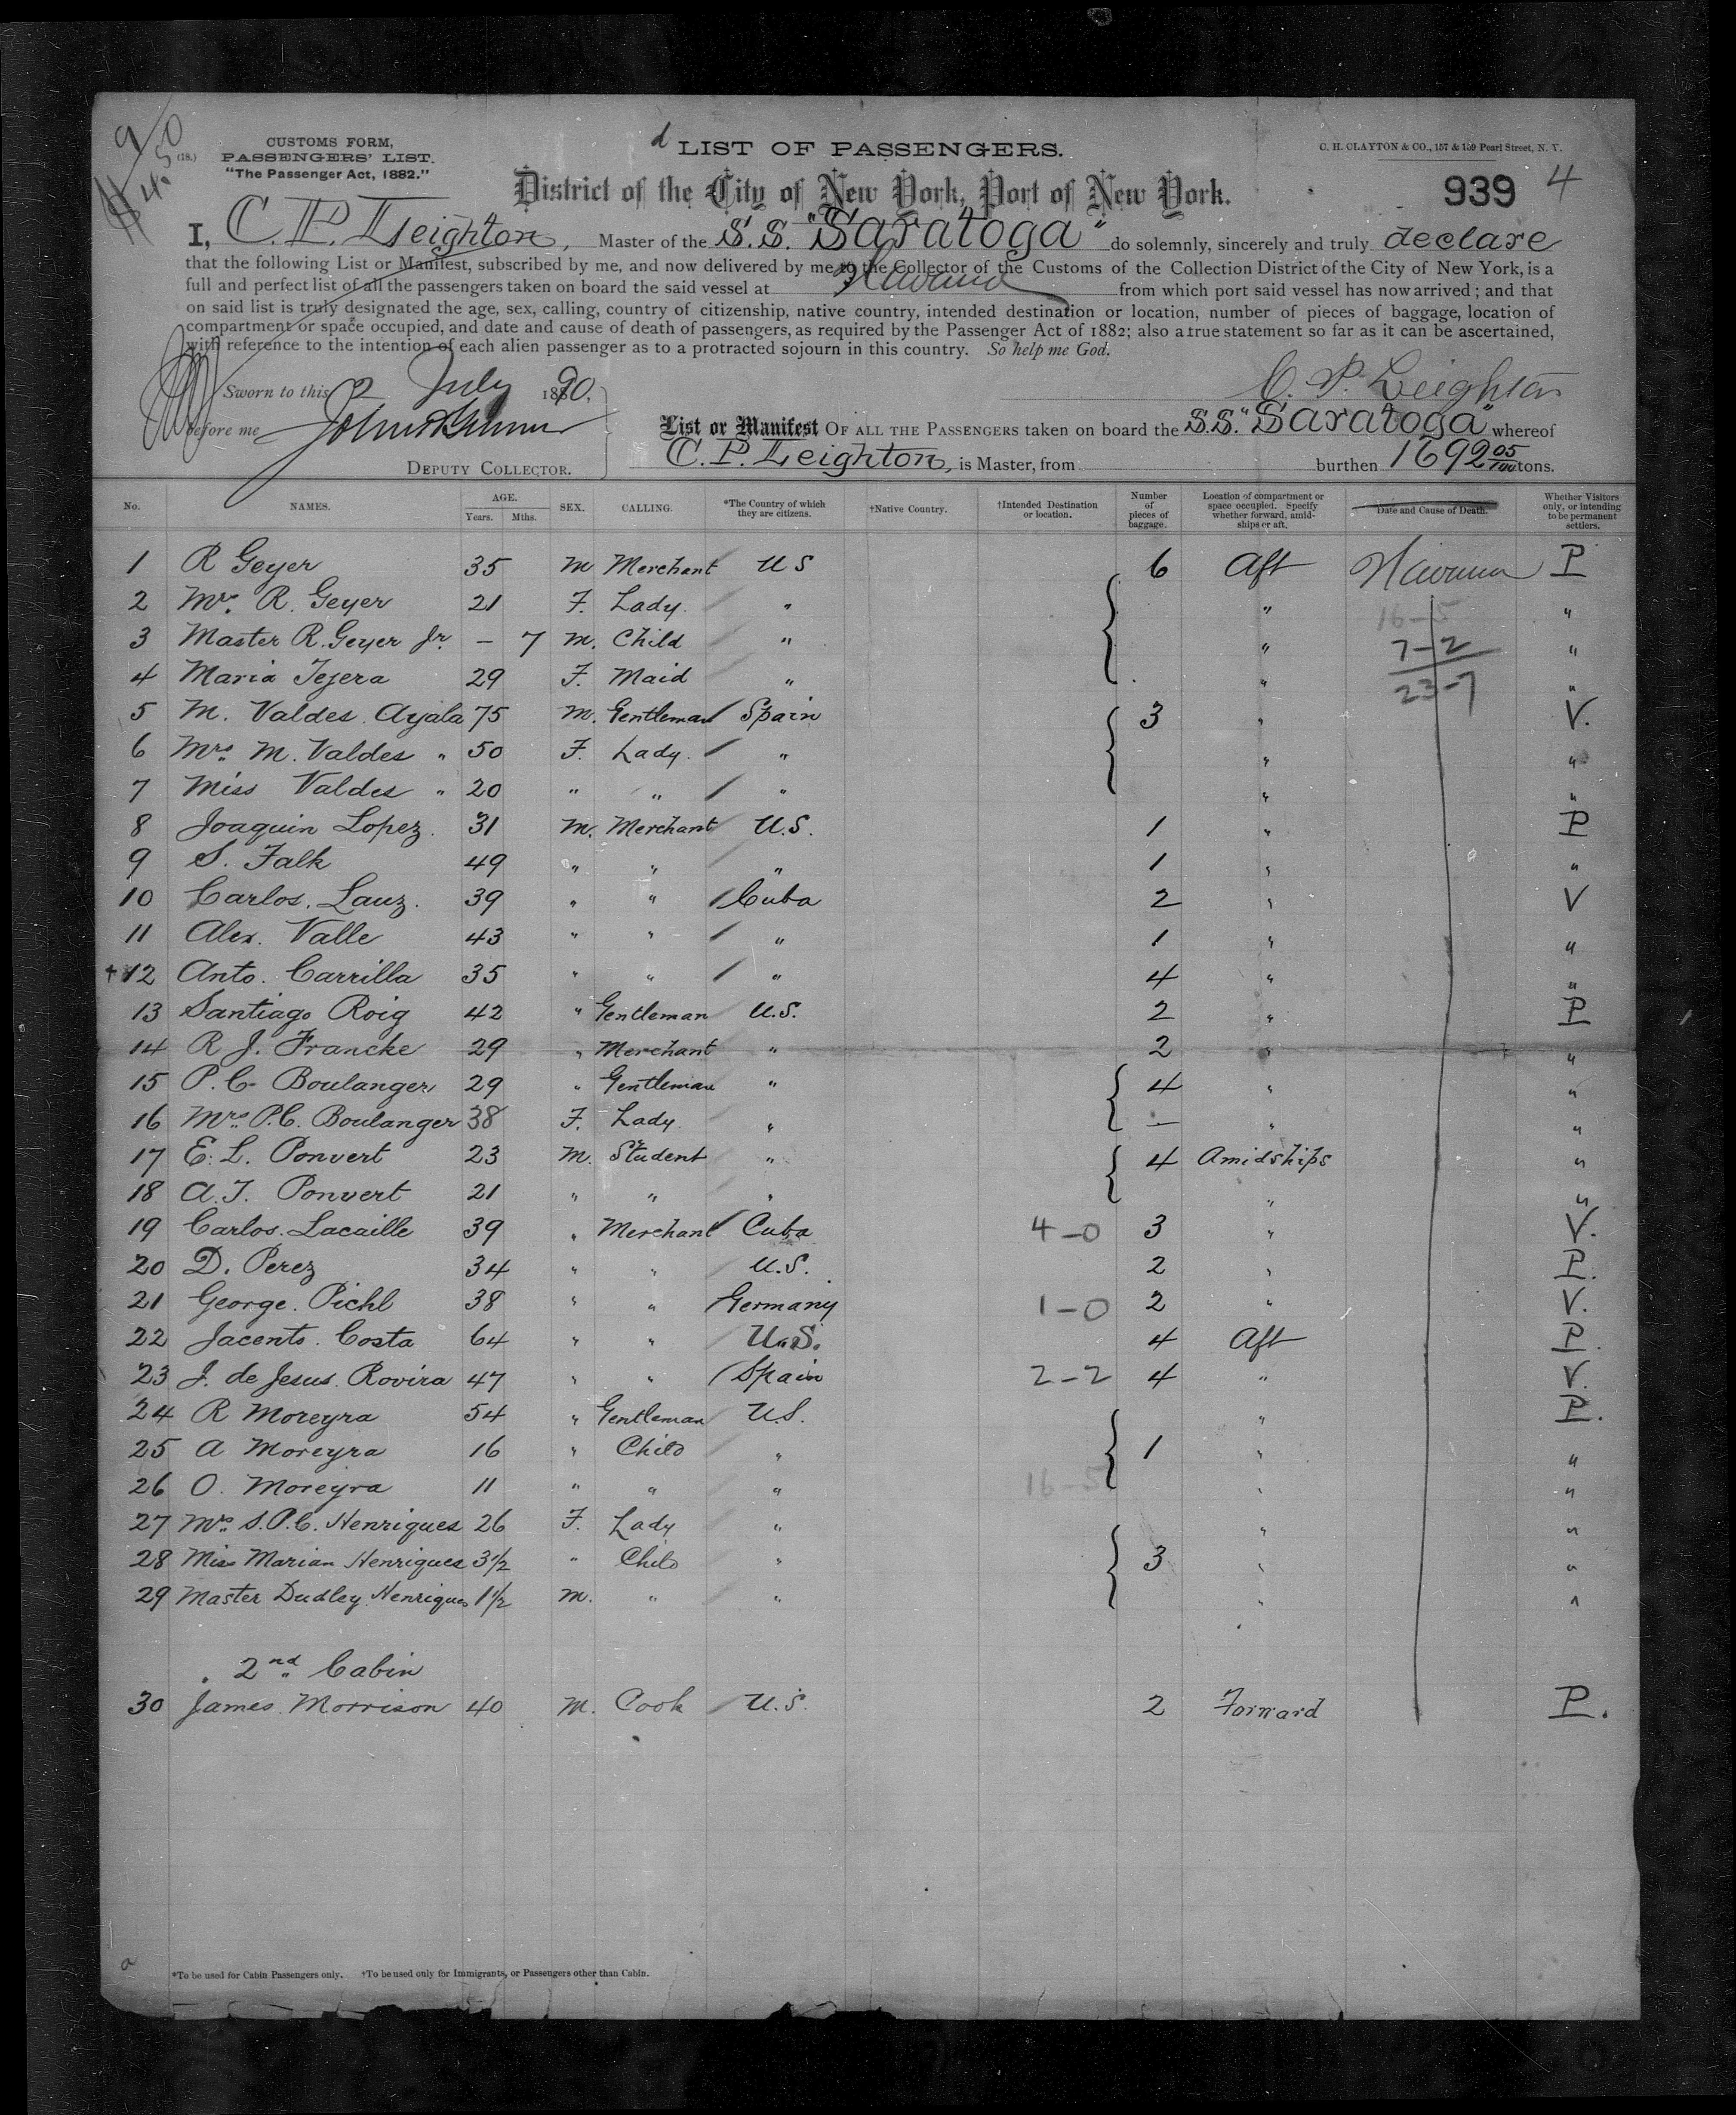 9/
$4.50
(18.)
CUSTOMS FORM,
PASSENGERS' LIST.
"The Passenger Act, 1882."
LIST OF PASSENGERS.
C. H. CLAYTON & CO., 157 & 159 Pearl Street, N. Y.
District of the City of New York, Port of New York.
939 4
I, C. P. Leighton, Master of the S.S. "Saratoga" do solemnly, sincerely and truly declare
that the following List or Manifest, subscribed by me, and now delivered by me to the Collector of the Customs of the Collection District of the City of New York, is a
full and perfect list of all the passengers taken on board the said vessel at Havana from which port said vessel has now arrived; and that
on said list is truly designated the age, sex, calling, country of citizenship, native country, intended destination or location, number of pieces of baggage, location of
compartment or space occupied, and date and cause of death of passengers, as required by the Passenger Act of 1882; also a true statement so far as it can be ascertained,
with reference to the intention of each alien passenger as to a protracted sojourn in this country. So help me God.
Sworn to this 2 July 1890, C. P. Leighton
before me
DEPUTY COLLECTOR.
List or Manifest OF ALL THE PASSENGERS taken on board the S.S. "Saratoga" whereof
C. P. Leighton, is Master, from burthen 1692 05/100 tons.
No. NAMES. AGE. Years. Mths. SEX. CALLING. *The Country of which they are citizens. †Native Country. †Intended Destination or location. Number of pieces of baggage. Location of compartment or space occupied. Specify whether forward, amidships or aft. Date and Cause of Death. Whether Visitors only, or intending to be permanent settlers.
1 R Geyer 35 M Merchant U S 6 Aft Havana P
2 Mrs. R. Geyer 21 F. Lady. " " "
16-5
3 Master R. Geyer Jr. – 7 M. Child " " "
7-2
4 Maria Tejera 29 F. Maid " " "
23-7
5 M. Valdes Ayala 75 M. Gentleman Spain 3 " V.
6 Mrs. M. Valdes " 50 F. Lady. " " "
7 Miss Valdes " 20 " " " " "
8 Joaquin Lopez. 31 M. Merchant U.S. 1 " P
9 S. Falk 49 " " " 1 " "
10 Carlos. Lauz. 39 " " Cuba 2 " V
11 Alex. Valle 43 " " " 1 " "
+ 12 Anto. Carrilla 35 " " " 4 " "
13 Santiago Roig 42 " Gentleman U.S. 2 " P
14 R J. Francke 29 " Merchant " 2 " "
15 P. C. Boulanger 29 " Gentleman " 4 " "
16 Mrs. P.C. Boulanger 38 F. Lady " – " "
17 E. L. Ponvert 23 M. Student " 4 Amidships "
18 A. J. Ponvert 21 " " " " "
19 Carlos. Lacaille 39 " Merchant Cuba 4-0 3 " V.
20 D. Perez 34 " " U.S. 2 " P.
21 George. Pichl 38 " " Germany 1-0 2 " V.
22 Jacento. Costa 64 " " U.S. 4 Aft P.
23 J. de Jesus. Rovira 47 " " Spain 2-2 4 " V.
24 R Moreyra 54 " Gentleman U.S. " P.
25 A Moreyra 16 " Child " 1 " "
26 O. Moreyra 11 " " " 16-5 " "
27 Mrs. S.P.C. Henriques 26 F. Lady " " "
28 Miss Marian Henriques 3½ " Child " 3 " "
29 Master Dudley Henriques 1½ M. " " " "
2nd Cabin
30 James. Morrison 40 M. Cook U.S. 2 Forward P.
*To be used for Cabin Passengers only. †To be used only for Immigrants, or Passengers other than Cabin.